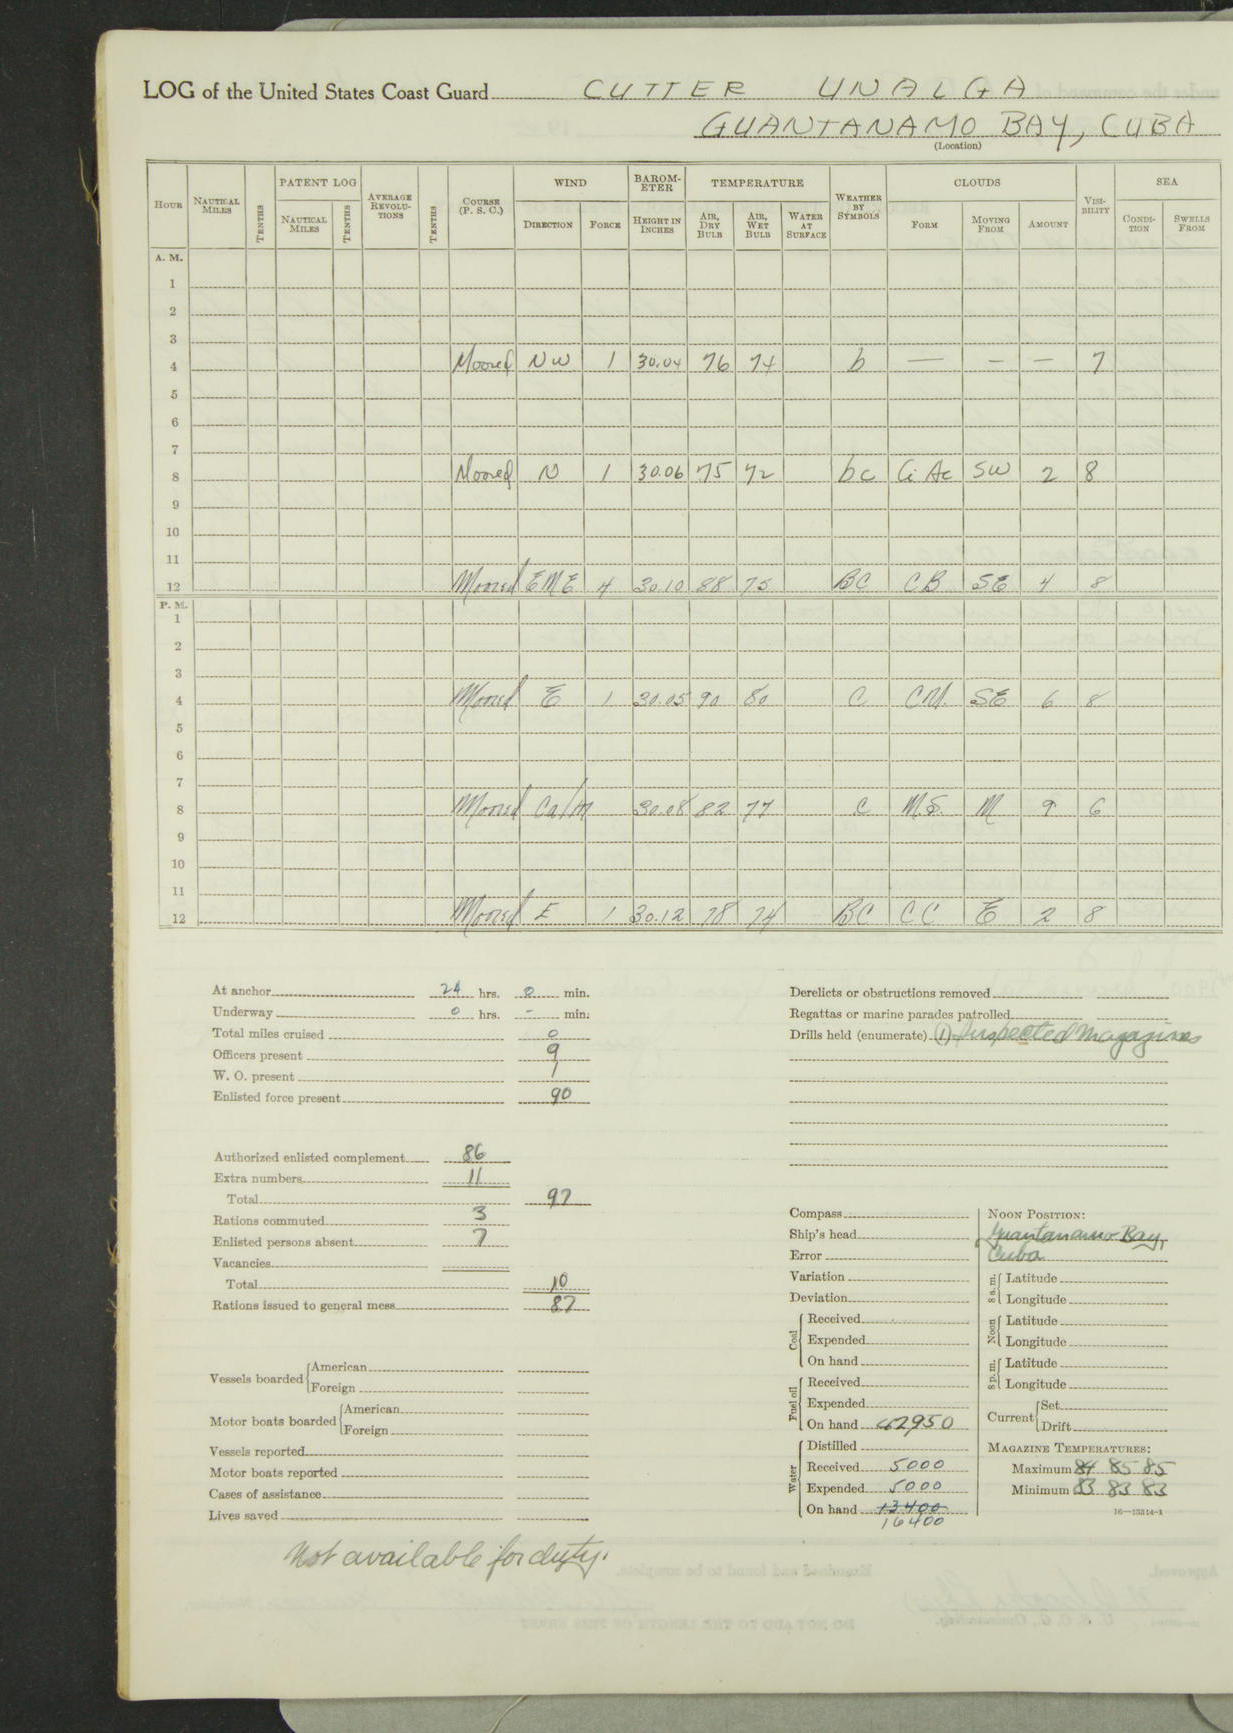 LOG of the United States Coast Guard CUTTER UNALGA
GUANTANAMO BAY, CUBA
(Location)
HOUR NAUTICAL MILES TENTHS PATENT LOG NAUTICAL MILES TENTHS AVERAGE REVOLU-TIONS TENTHS COURSE (P. S. C.) WIND DIRECTION FORCE BAROM-ETER HEIGHT IN INCHES TEMPERATURE AIR, DRY BULB AIR, WET BULB WATER AT SURFACE WEATHER BY SYMBOLS CLOUDS FORM MOVING FROM AMOUNT VISI-BILITY SEA CONDI-TION SWELLS FROM
A. M.
1
2
3
4 Moored NW 1 30.04 76 74 b — – — 7
5
6
7
8 Moored N 1 30.06 75 72 bc Ci Ac SW 2 8
9
10
11
12 Moored ENE 4 30.10 88 75 BC CB SE 4 8
P. M.
1
2
3
4 Moored E 1 30.05 90 80 C CM. SE 6 8
5
6
7
8 Moored Calm 30.08 82 77 C M.S. M 9 6
9
10
11
12 Moored E 1 30.12 78 74 BC CC E 2 8
At anchor 24 hrs. 0 min.
Underway 0 hrs. - min.
Total miles cruised 0
Officers present 9
W. O. present 1
Enlisted force present 90
Authorized enlisted complement 86
Extra numbers 11
Total 97
Rations commuted 3
Enlisted persons absent 7
Vacancies
Total 10
Rations issued to general mess 87
Vessels boarded American
Foreign
Motor boats boarded American
Foreign
Vessels reported
Motor boats reported
Cases of assistance
Lives saved
Not available for duty.
Derelicts or obstructions removed
Regattas or marine parades patrolled
Drills held (enumerate) (1) Inspected Magazines
Compass
Ship's head
Error
Variation
Deviation
Coal Received
Expended
On hand
Fuel oil Received
Expended
On hand 42950
Water Distilled
Received 5000
Expended 5000
On hand 13400
16400
NOON POSITION:
Guantanamo Bay,
Cuba
8 a. m. Latitude
Longitude
Noon Latitude
Longitude
8 p. m. Latitude
Longitude
Current Set
Drift
MAGAZINE TEMPERATURES:
Maximum 84 85 85
Minimum 83 83 83
16—13214-1